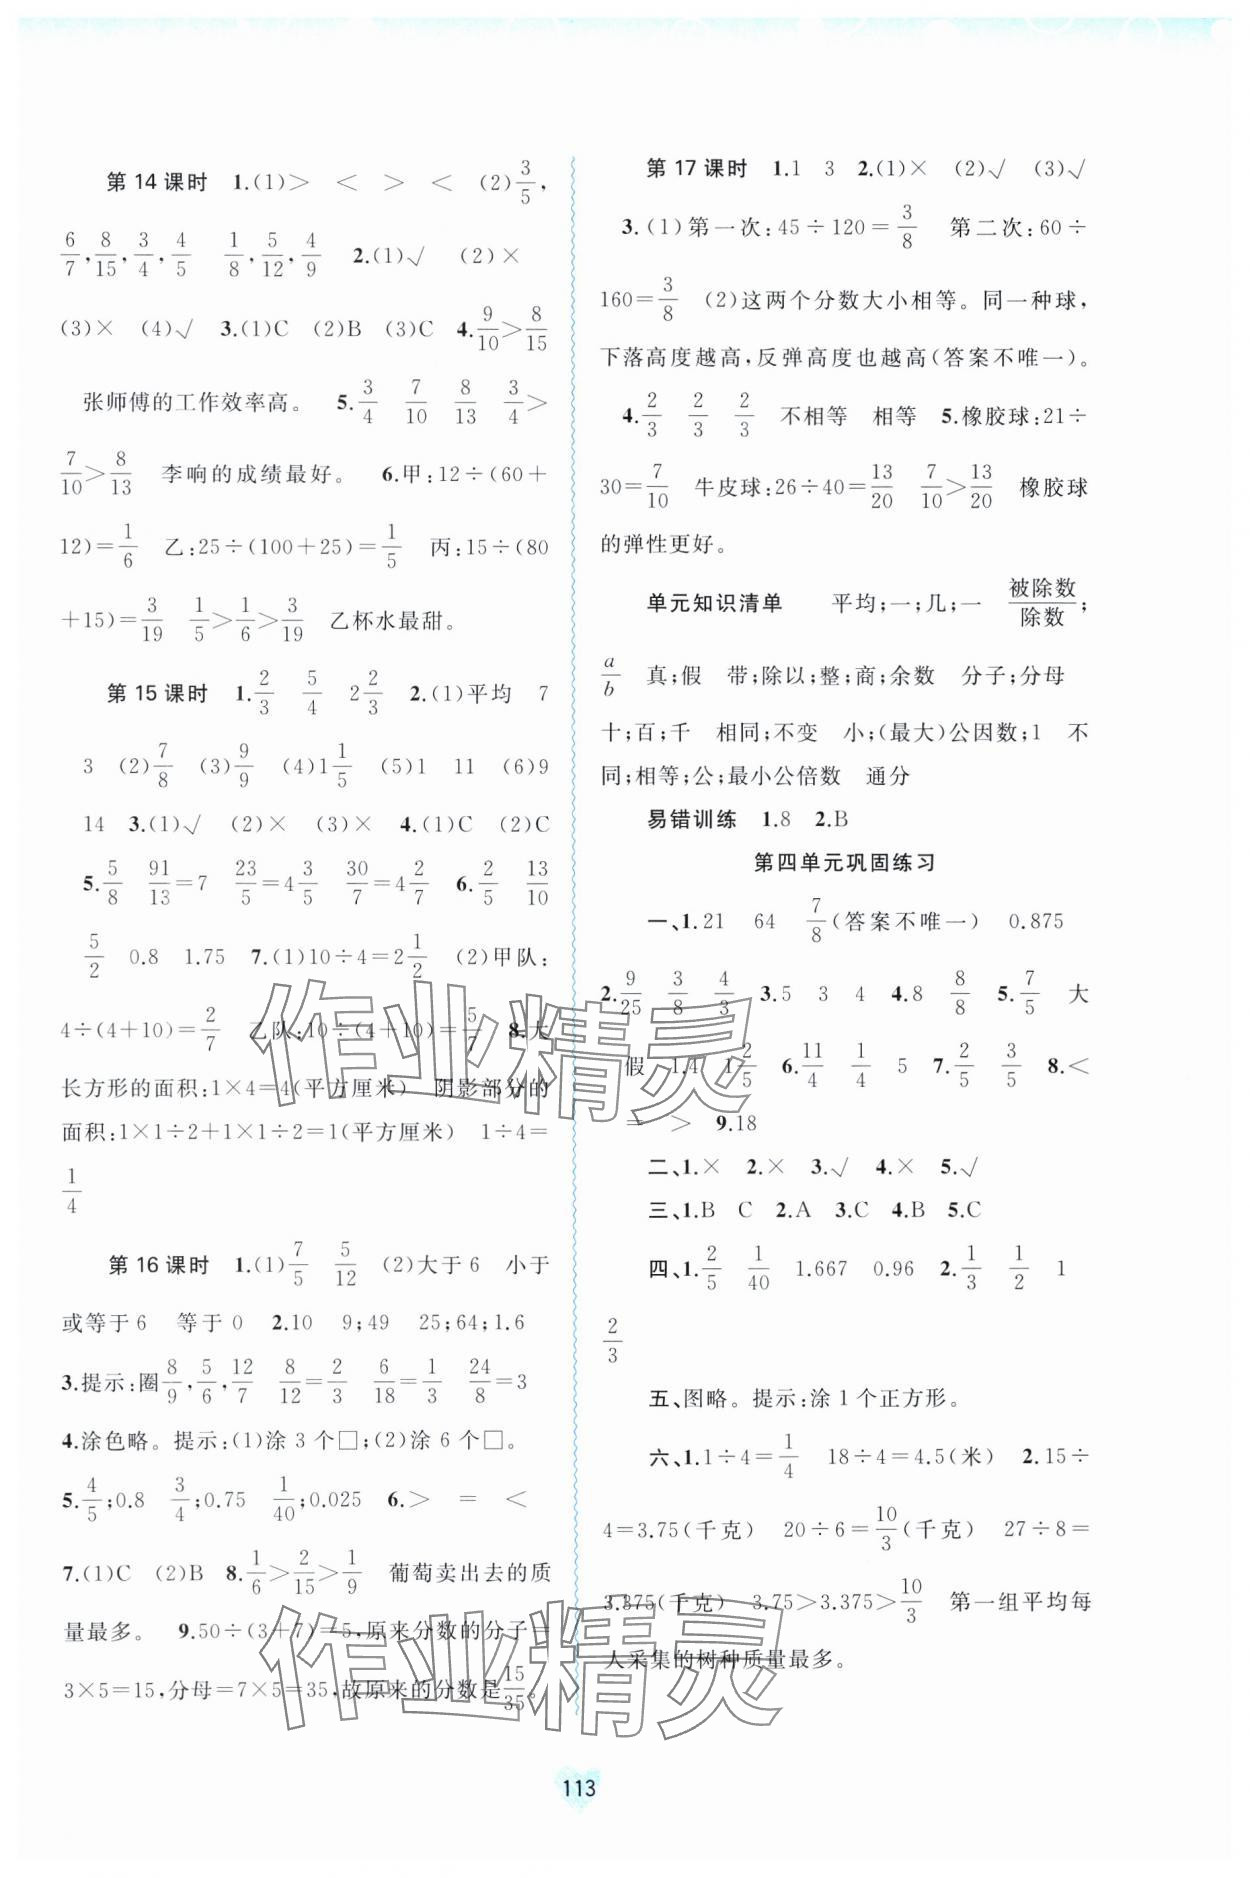 第14课时 1.(1)> < > < (2)3/5,
6/7,8/15,3/4,4/5 1/8,5/12,4/9 2.(1)√ (2)×
(3)× (4)√ 3.(1)C (2)B (3)C 4.9/10>8/15
张师傅的工作效率高。 5.3/4 7/10 8/13 3/4>
7/10>8/13 李响的成绩最好。 6.甲:12÷(60+
12)=1/6 乙:25÷(100+25)=1/5 丙:15÷(80
+15)=3/19 1/5>1/6>3/19 乙杯水最甜。
第15课时 1.2/3 5/4 2 2/3 2.(1)平均 7
3 (2)7/8 (3)9/9 (4)1 1/5 (5)1 11 (6)9
14 3.(1)√ (2)× (3)× 4.(1)C (2)C
5.5/8 91/13=7 23/5=4 3/5 30/7=4 2/7 6.2/5 13/10
5/2 0.8 1.75 7.(1)10÷4=2 1/2 (2)甲队:
4÷(4+10)=2/7 乙队:10÷(4+10)=5/7 8.大
长方形的面积:1×4=4(平方厘米) 阴影部分的
面积:1×1÷2+1×1÷2=1(平方厘米) 1÷4=
1/4
第16课时 1.(1)7/5 5/12 (2)大于6 小于
或等于6 等于0 2.10 9;49 25;64;1.6
3.提示:圈8/9,5/6,12/7 8/12=2/3 6/18=1/3 24/8=3
4.涂色略。提示:(1)涂3个□;(2)涂6个□。
5.4/5;0.8 3/4;0.75 1/40;0.025 6.> = <
7.(1)C (2)B 8.1/6>2/15>1/9 葡萄卖出去的质
量最多。 9.50÷(3+7)=5,原来分数的分子=
3×5=15,分母=7×5=35,故原来的分数是15/35。
第17课时 1.1 3 2.(1)× (2)√ (3)√
3.(1)第一次:45÷120=3/8 第二次:60÷
160=3/8 (2)这两个分数大小相等。同一种球,
下落高度越高,反弹高度也越高(答案不唯一)。
4.2/3 2/3 2/3 不相等 相等 5.橡胶球:21÷
30=7/10 牛皮球:26÷40=13/20 7/10>13/20 橡胶球
的弹性更好。
单元知识清单 平均;一;几;一 被除数/除数;
a/b 真;假 带;除以;整;商;余数 分子;分母
十;百;千 相同;不变 小;(最大)公因数;1 不
同;相等;公;最小公倍数 通分
易错训练 1.8 2.B
第四单元巩固练习
一、1.21 64 7/8(答案不唯一) 0.875
2.9/25 3/8 4/3 3.5 3 4 4.8 8/8 5.7/5 大
假 1.4 1 2/5 6.11/4 1/4 5 7.2/5 3/5 8.<
= > 9.18
二、1.× 2.× 3.√ 4.× 5.√
三、1.B C 2.A 3.C 4.B 5.C
四、1.2/5 1/40 1.667 0.96 2.1/3 1/2 1
2/3
五、图略。提示:涂1个正方形。
六、1.1÷4=1/4 18÷4=4.5(米) 2.15÷
4=3.75(千克) 20÷6=10/3(千克) 27÷8=
3.375(千克) 3.75>3.375>10/3 第一组平均每
人采集的树种质量最多。
作业精灵
作业精灵
113